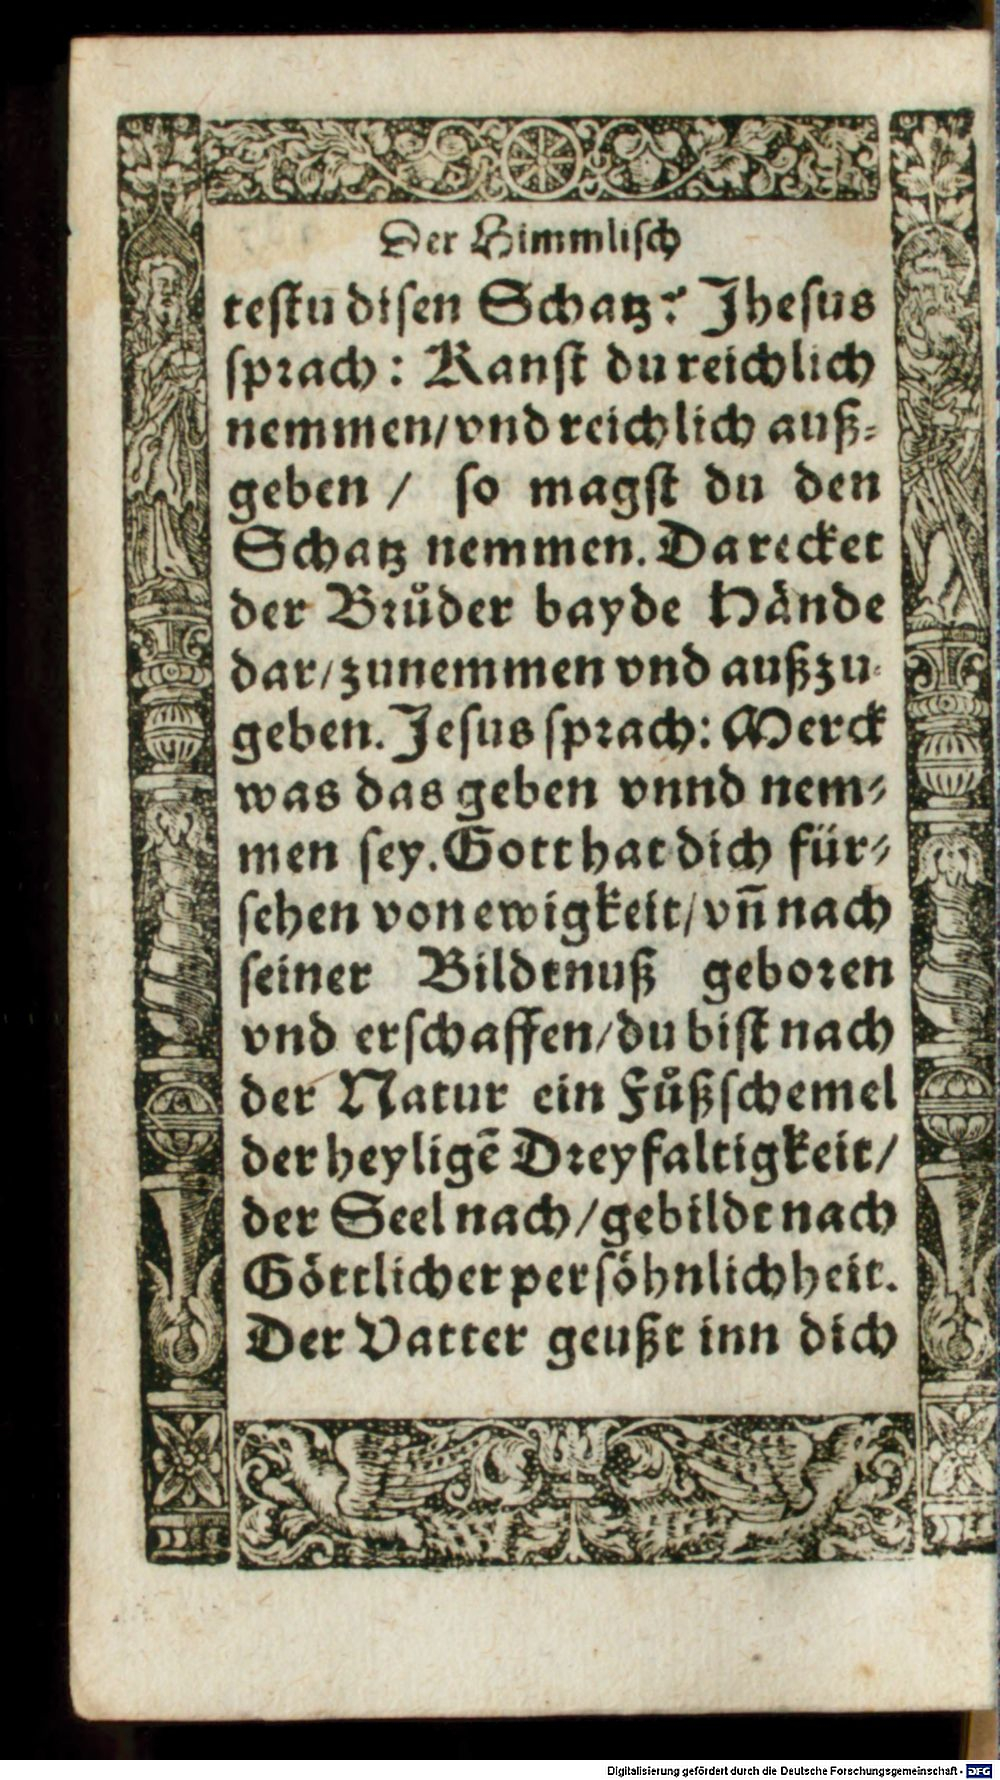 Der Himmlisch
testu disen Schatz? Jhesus
sprach: Kanst du reichlich
nemmen/ vnd reichlich auß-
geben / so magst du den
Schatz nemmen. Da recket
der Brůder bayde Hände
dar/ zunemmen vnd außzu-
geben. Jesus sprach: Merck
was das geben vnnd nem-
men sey. Gott hat dich für-
sehen von ewigkeit/ vn̄ nach
seiner Bildtnuß geboren
vnd erschaffen/ du bist nach
der Natur ein Fůßschemel
der heyligē Dreyfaltigkeit/
der Seel nach/ gebildt nach
Göttlicher persöhnlichheit.
Der Vatter geußt inn dich
Digitalisierung gefördert durch die Deutsche Forschungsgemeinschaft - DFG